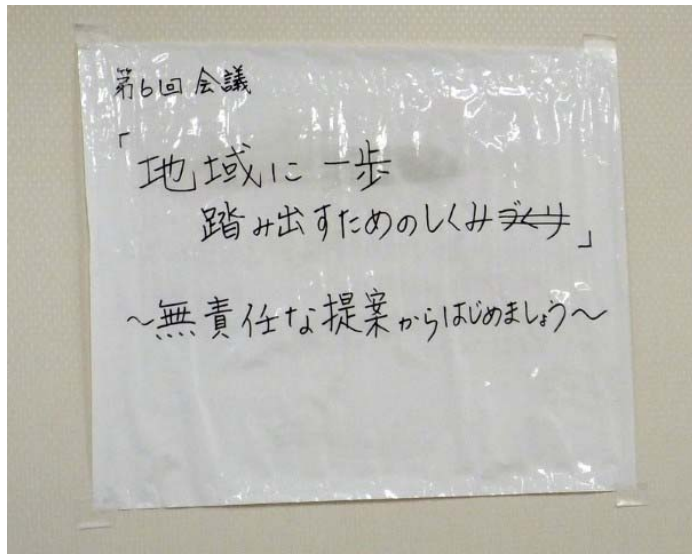 第6回 会議
「地域に一歩
踏み出すためのしくみづくり」
~無責任な提案からはじめましょう~